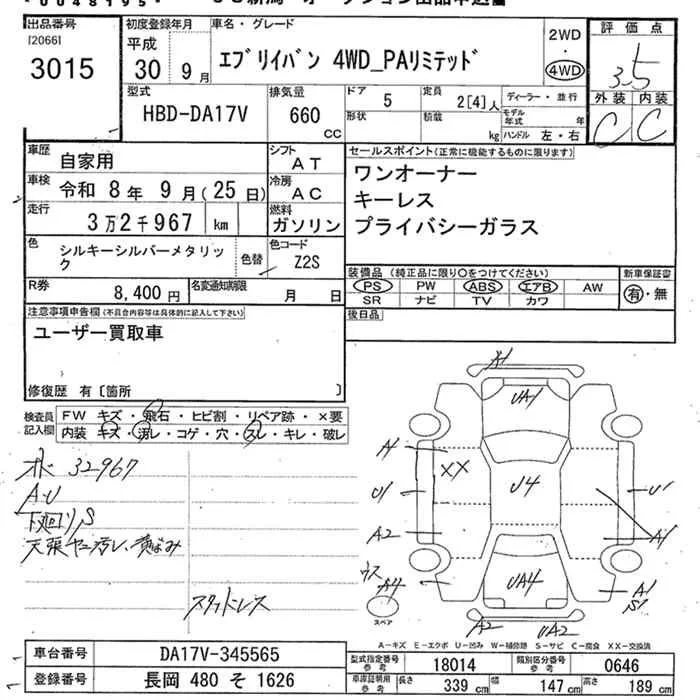 出品番号
[2066]
3015
初度登録年月
平成
30年 9月
車名・グレード
エブリイバン 4WD_PAリミテッド
2WD
・
4WD
評価点
3.5
外装 内装
C C
型式
HBD-DA17V
排気量
660
cc
ドア
5
形状
定員
2[4]人
積載
kg
ディーラー・並行
モデル年式 年
ハンドル 左・右
車歴
自家用
シフト
AT
車検
令和 8年 9月(25日)
冷房
AC
走行
3万2千967 km
燃料
ガソリン
色
シルキーシルバーメタリック
色替
色コード
Z2S
R券
8,400円
名変通知期限
月 日
セールスポイント(正常に機能するものに限ります)
ワンオーナー
キーレス
プライバシーガラス
装備品 (純正品に限り○をつけてください)
PS PW ABS エアB AW
SR ナビ TV カワ
新車保証書
有・無
後日品
注意事項申告欄(不具合内容等は具体的に記入して下さい)
ユーザー買取車
修復歴 有〔箇所 〕
検査員記入欄
FW キズ・飛石・ヒビ割・リペア跡・×要
内装 キズ・汚レ・コゲ・穴・スレ・キレ・破レ
オド 32967
A.U
下廻りS
天張ヤニ汚レ、黄ばみ
スタッドレス
A1
UA1
A1
XX
U1
U4
U1
A2
A1
ウス
A4
UA4
A1
S1
スペア
A2
UA2
A-キズ E-エクボ U-凹み W-補修跡 S-サビ C-腐食 XX-交換済
車台番号
DA17V-345565
登録番号
長岡 480 そ 1626
型式指定番号
参考
18014
類別区分番号
参考
0646
車庫証明用
参考
長さ
339 cm
幅
147 cm
高さ
189 cm